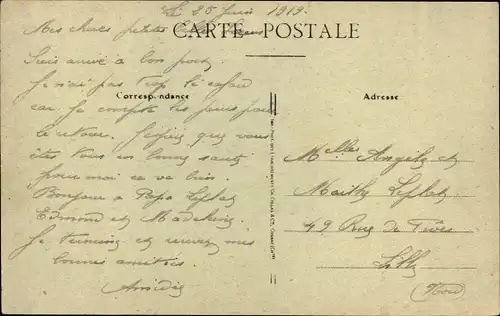 Le 20 Juin 1919.
CARTE POSTALE
Mes chères petites
Suis arrivé à bon port.
Je n'ai pas trop le cafard
Correspondance
car Je compte les jours pour
le retour. J'espère que vous
êtes tous en bonne santé
pour moi ça va bien.
Bonjour à Papa
Edmond et Madeleine.
Je termine et recevez mes
bonnes amitiés.
Amédée
Adresse
Melles Angèle et
49 Rue de
Lille
(Nord)